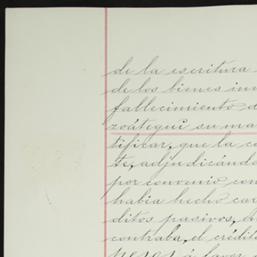 de la escritura
de los bienes inm
fallecimiento d
zoátegui su ma
tificar, que la c
te, adjudicándo
por convenio con
habia hecho car
ditos pasivos, 
contraba, el crédit
pesos á favor